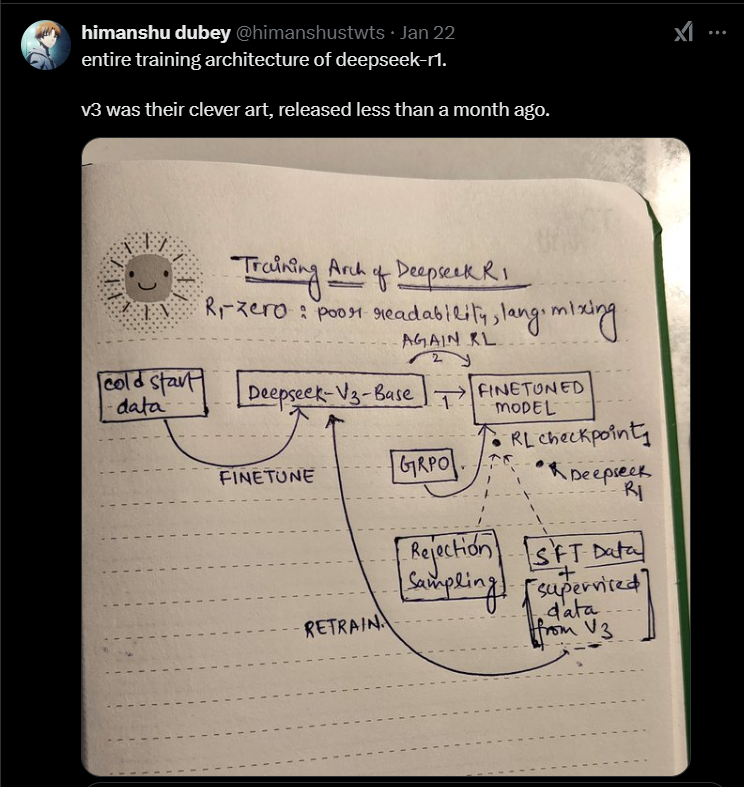 himanshu dubey @himanshustwts · Jan 22
entire training architecture of deepseek-r1.
v3 was their clever art, released less than a month ago.
Training Arch of Deepseek R1
R1-zero : poor readability, lang. mixing
AGAIN RL
2
cold start
data
Deepseek-V3-Base
1
FINETUNED
MODEL
FINETUNE
GRPO
• RL checkpoint1
• Deepseek
R1
Rejection
Sampling
SFT Data
+
supervised
data
from V3
RETRAIN.